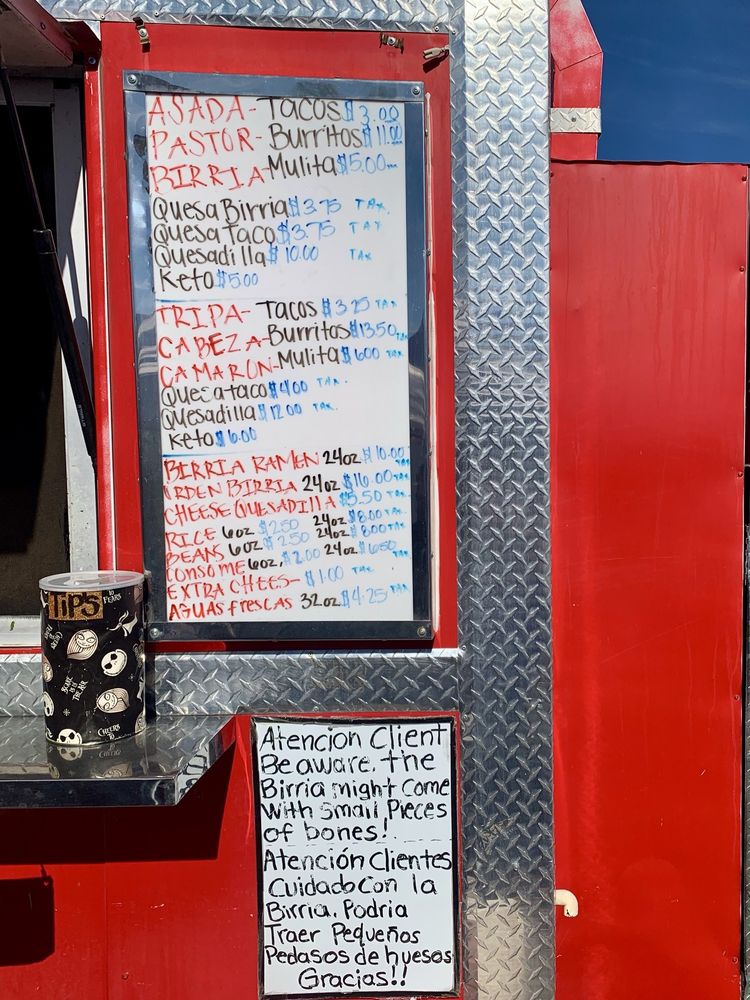 ASADA- Tacos $3.00
PASTOR- Burritos $11.00
BIRRIA- Mulita $5.00
QuesaBirria $3.75 TAX
Quesataco $3.75 TAX
Quesadilla $10.00 TAX
Keto $5.00
TRIPA- Tacos $3.25 TAX
CABEZA- Burritos $13.50 TAX
CAMARON- Mulita $6.00 TAX
Quesataco $4.00 TAX.
Quesadilla $12.00 TAX.
Keto $6.00
BIRRIA RAMEN 24oz $10.00 TAX
ORDEN BIRRIA 24oz $16.00 TAX
CHEESE QUESADILLA $5.50 TAX
RICE 6oz $2.50 24oz $8.00 TAX
BEANS 6oz $2.50 24oz $8.00 TAX
CONSOME 6oz. $2.00 24oz $6.50
EXTRA CHEES- $1.00 TAX
AGUAS frescas 32oz $4.25 TAX
TiPS
Atencion Client
Be aware. the
Birria might Come
with small Pieces
of bones!
Atención Clientes
Cuidado Con la
Birria. Podria
Traer Pequeños
Pedasos de huesos
Gracias!!